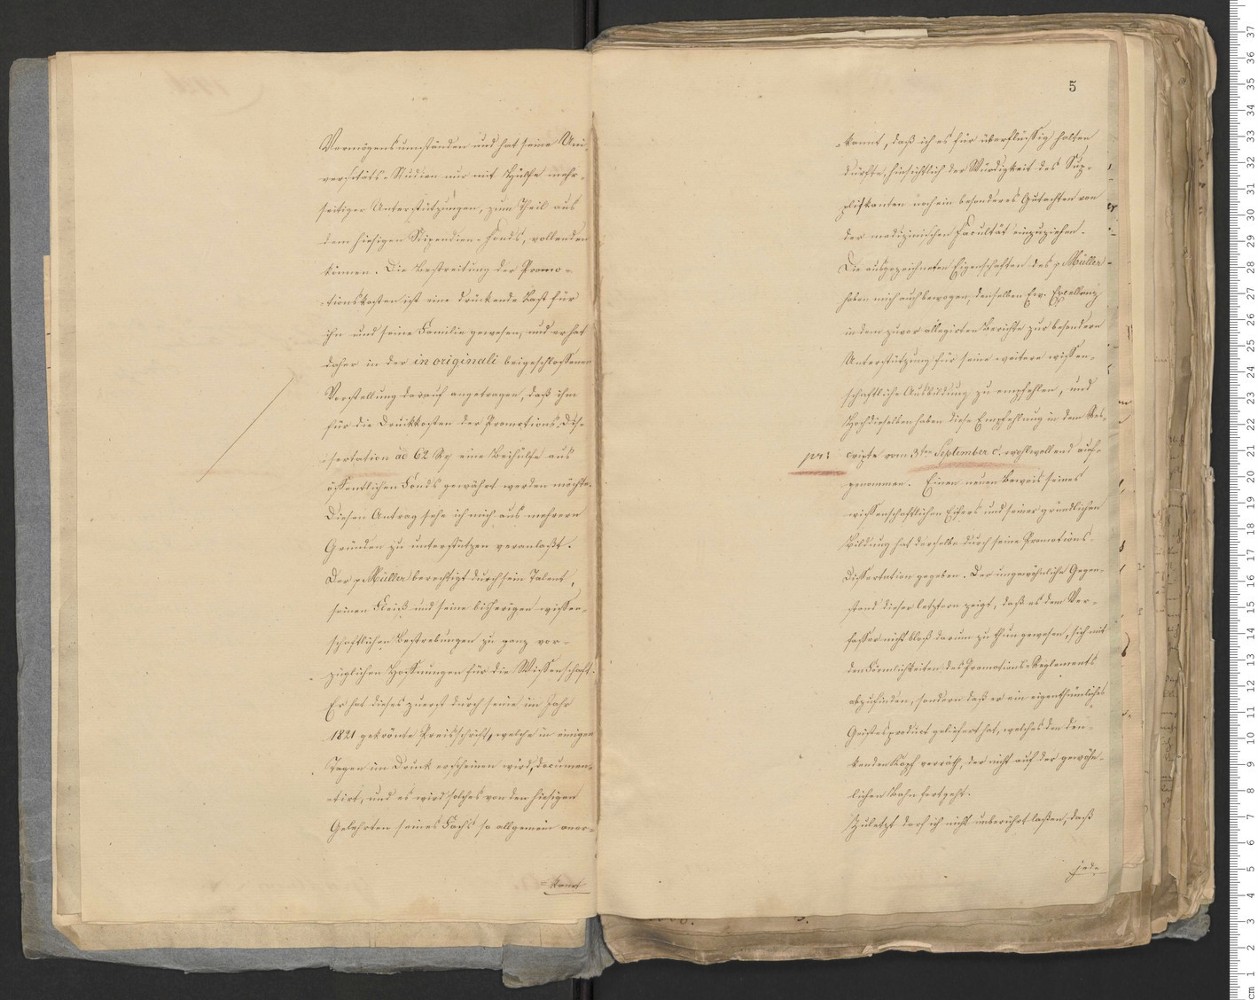 Vermögensumständen und hat seine Uni-
versitäts-Studien nur mit Hülfe mehr-
seitiger Unterstützungen, zum Theil aus
dem hiesigen Stipendien-Fonds, vollenden
können. Die Bestreitung der Promo-
-tionskosten ist eine drückende Last für
ihn und seine Familie gewesen, und er hat
daher in der in originali beigeschlossenen
Vorstellung darauf angetragen, daß ihm
für die Druckkosten der Promotions-Dis-
-sertation ad 62 Rg eine Beihülfe aus
öffentlichen Fonds gewährt werden möchte.
Diesen Antrag sehe ich mich aus mehrern
Gründen zu unterstützen veranlaßt.
Der p. Müller berechtigt durch sein Talent,
seinen Fleiß und seine bisherigen wissen-
schaftlichen Bestrebungen zu ganz vor-
züglichen Hoffnungen für die Wissenschaft.
Er hat dieses zuerst durch seine im Jahr
1821 gekrönte Preisschrift, welche in einigen
Tagen im Druck erscheinen wird, documen-
-tirt, und es wird solches von den hiesigen
Gelehrten seines Fachs so allgemein aner-
=kannt
5
-kannt, daß ich es für überflüssig halten
durfte, hinsichtlich der Würdigkeit des Sup-
plikanten noch ein besonderes Gutachten von
der medizinischen Facultät einzuziehen.
Die ausgezeichneten Eigenschaften des p. Müller
haben mich auch bewogen, denselben Ew. Excellenz
in dem zuvor allegirten Berichte zur besondern
Unterstützung für seine weitere wissen-
schaftliche Ausbildung zu empfehlen, und
Hochdieselben haben diese Empfehlung in dem Res-
pr: cripte vom 3ten September c. wohlwollend auf-
genommen. Einen neuen Beweis seines
wissenschaftlichen Eifers und seiner gründlichen
Bildung hat derselbe durch seine Promotions-
Dissertation gegeben. Der ungewöhnliche Gegen-
stand dieser letztern zeigt, daß es dem Ver-
fasser nicht bloß darum zu thun gewesen, sich mit
den Förmlichkeiten des Promotions-Reglements
abzufinden, sondern daß er ein eigenthümliches
Geistesproduct geliefert hat, welches den den-
kenden Kopf verräth, der nicht auf der gewöhn-
lichen Bahn fortgeht.
Zuletzt darf ich nicht unberührt lassen, daß